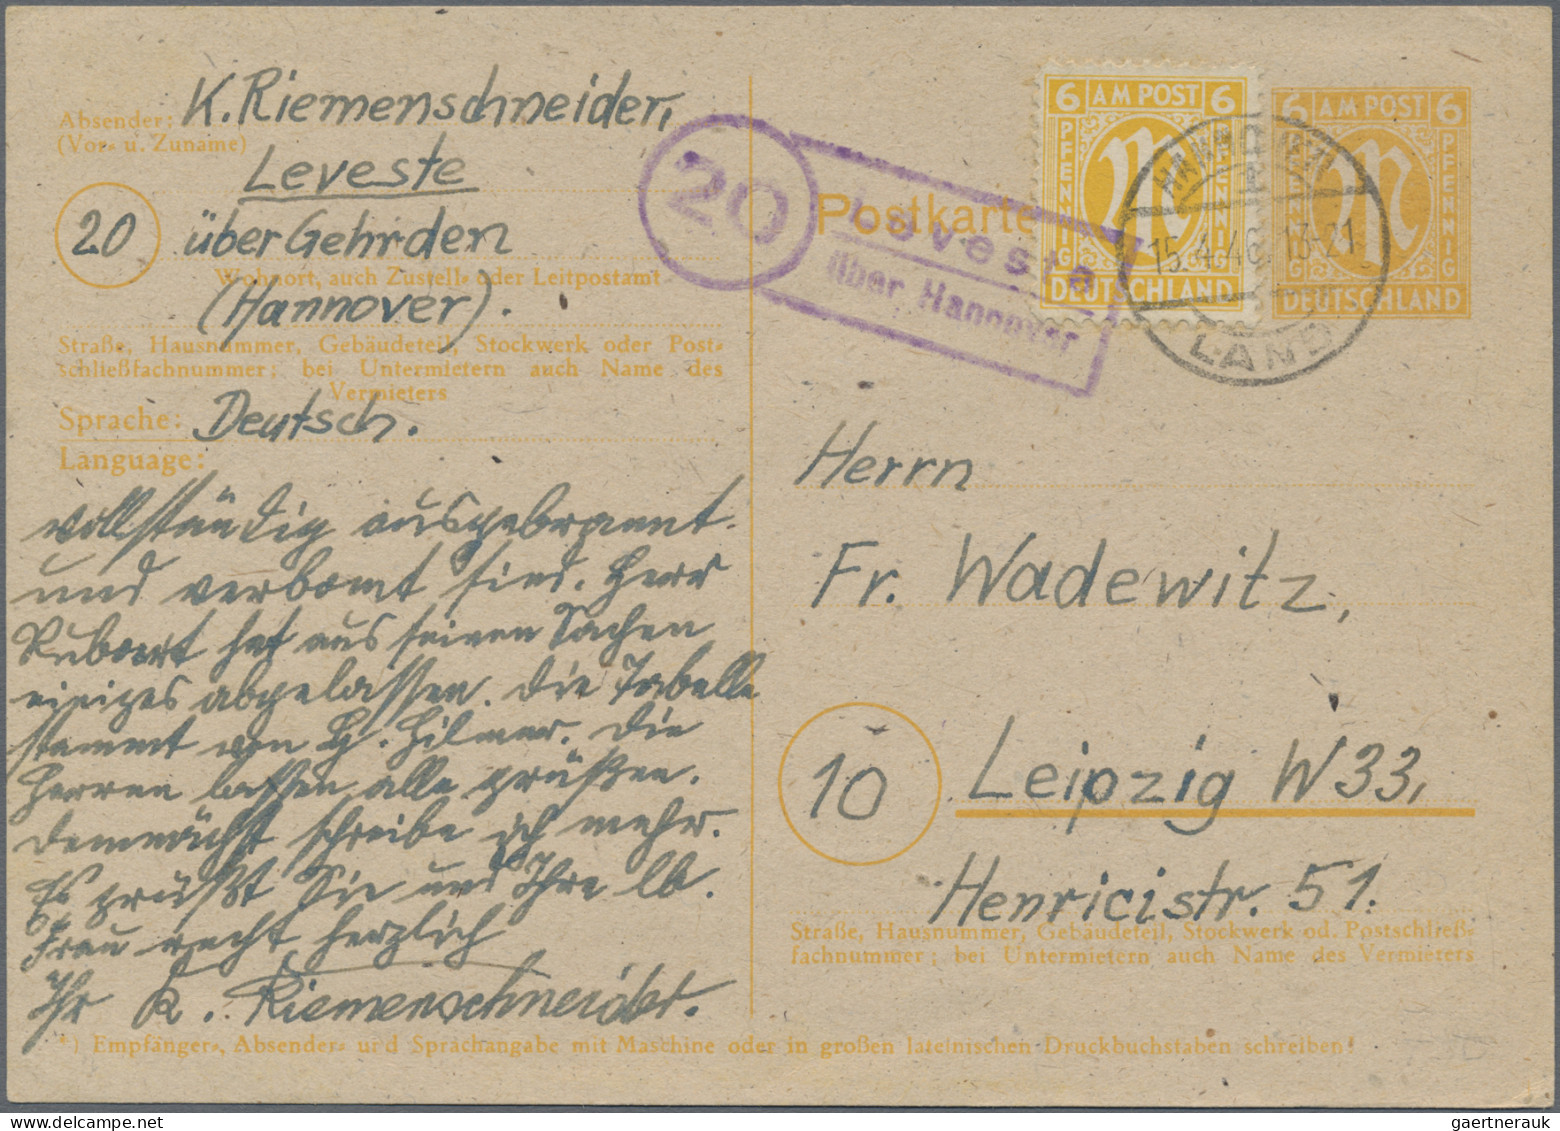 Absender: K. Riemenschneider,
(Vor- u. Zuname)
Leveste
20 über Gehrden
Wohnort, auch Zustell- oder Leitpostamt
(Hannover).
Straße, Hausnummer, Gebäudeteil, Stockwerk oder Post-
schließfachnummer; bei Untermietern auch Name des
Vermieters
Sprache: Deutsch.
Language:
vollständig ausgebrannt
und verbomt sind. Herr
hat aus seinen Sachen
einiges abgelassen. Die Tabelle
stammt von H. Hilmer. Die
Herren lassen alle grüßen.
Demnächst schreibe ich mehr.
Es grüßt Sie und Ihre lb.
Frau recht herzlich
Ihr K. Riemenschneider.
20
Leveste
über Hannover
Postkarte
6 AM POST 6
PFENNIG
M
PFENNIG
DEUTSCHLAND
6 AM POST 6
PFENNIG
M
PFENNIG
DEUTSCHLAND
15.4.46. 13-21
LAND
Herrn
Fr. Wadewitz,
10 Leipzig W 33,
Henricistr. 51.
Straße, Hausnummer, Gebäudeteil, Stockwerk od. Postschließ-
fachnummer; bei Untermietern auch Name des Vermieters
*) Empfänger-, Absender- und Sprachangabe mit Maschine oder in großen lateinischen Druckbuchstaben schreiben!
gaertnerauk